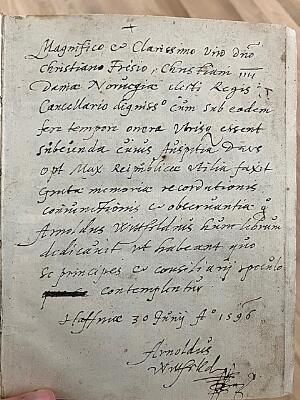 Magnifico et Clarissimo Viro Dno
Christiano Frisio, Christiani IIII
Daniæ Norvegiæ electi Regis
Cancellario digniss° cum sub eodem
fere tempori onera utrisq essent
subeunda cuius auspitia Deus
Opt Max Reipublicæ utilia faxit
Gratæ memoriæ recordationis
coniunctionis et observantiæ
Arnoldus Witfeldus hunc librum
dedicavit ut habeant quo
se principes et consiliarij speculo
contemplentur
Haffniæ 30 Junij A° 1596
Arnoldus
Witfeld